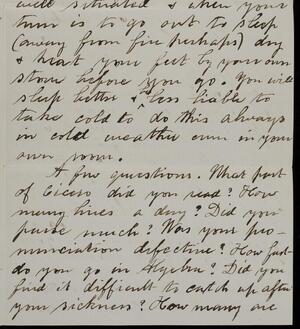 well situated & when your
turn is to go out to sleep
(away from fire perhaps) dry
& heat your feet by your own
stove before you go. You will
sleep better & be less liable to
take cold to do this always
in cold weather even in your
own room.
A few questions. What part
of Cicero did you read? How
many lines a day? Did you
parse much? Was your pro-
nunciation defective? How fast
do you go in Algebra? Did you
find it difficult to catch up after
your sickness? How many are